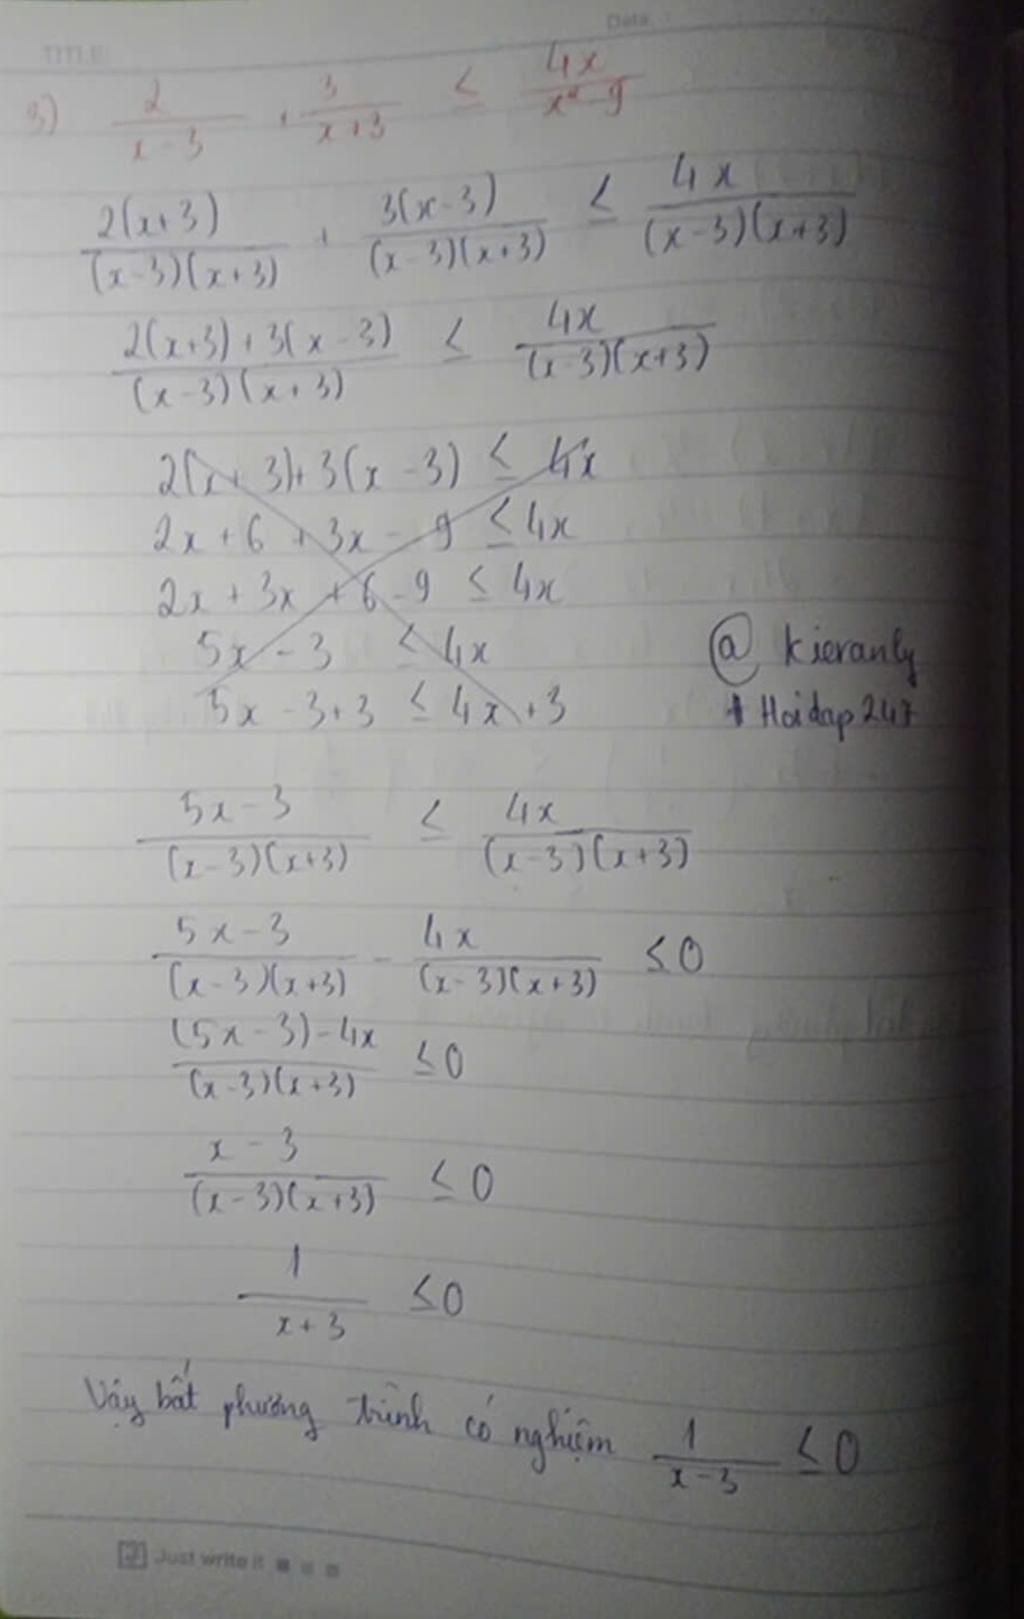 Date
TITLE
3) 2/(x-3) + 3/(x+3) ≤ 4x/(x²-9)
2(x+3)/((x-3)(x+3)) + 3(x-3)/((x-3)(x+3)) ≤ 4x/((x-3)(x+3))
(2(x+3)+3(x-3))/((x-3)(x+3)) ≤ 4x/((x-3)(x+3))
2(x+3)+3(x-3) ≤ 4x
2x+6+3x-9 ≤ 4x
2x+3x+6-9 ≤ 4x
5x-3 ≤ 4x
@ kieranly
5x-3+3 ≤ 4x+3
Hoidap247
(5x-3)/((x-3)(x+3)) ≤ 4x/((x-3)(x+3))
(5x-3)/((x-3)(x+3)) - 4x/((x-3)(x+3)) ≤ 0
((5x-3)-4x)/((x-3)(x+3)) ≤ 0
(x-3)/((x-3)(x+3)) ≤ 0
1/(x+3) ≤ 0
Vậy bất phương trình có nghiệm 1/(x-3) ≤ 0
Just write it